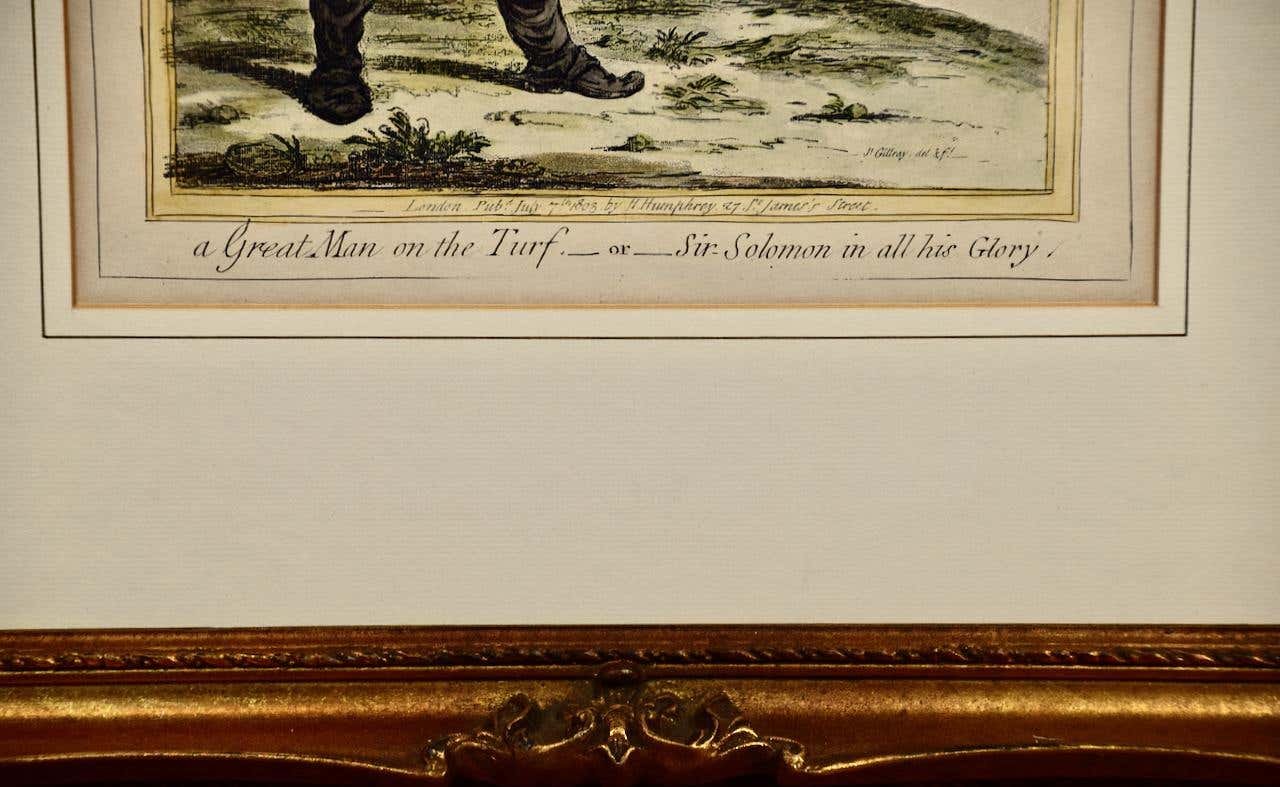 Js. Gillray. del & ft.
London. Pubd. July 7th 1803 by H. Humphrey. 27 St. James's Street.
a Great Man on the Turf. — or — Sir-Solomon in all his Glory.